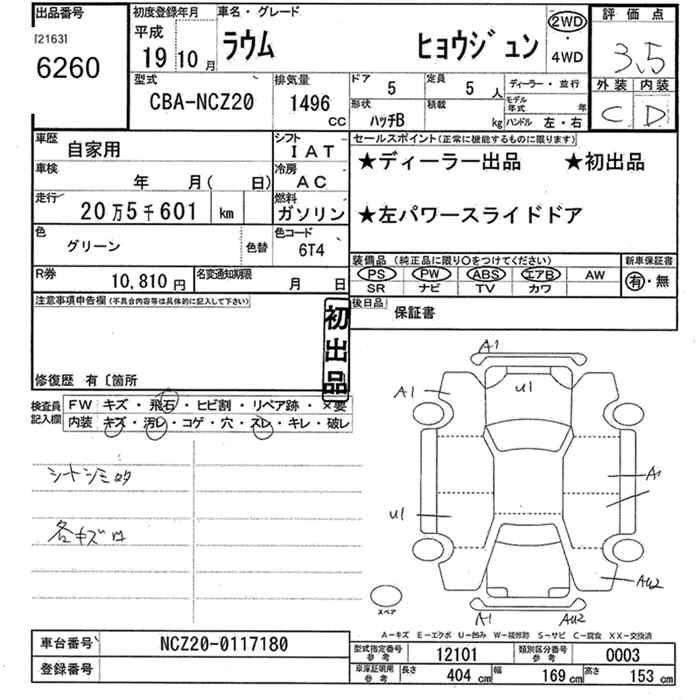 出品番号
[2163]
6260
初度登録年月
平成
19 10 月
車名・グレード
ラウム ヒョウジュン
2WD
・
4WD
評価点
3.5
外装 内装
C D
型式
CBA-NCZ20
排気量
1496 CC
ドア
5
定員
5 人
ディーラー・並行
形状
ハッチB
積載
kg
モデル年式 年
ハンドル 左・右
車歴
自家用
シフト
IAT
車検
年 月( 日)
冷房
AC
走行
20万5千601 km
燃料
ガソリン
色
グリーン
色替
色コード
6T4
R券
10,810 円
名変通知期限
月 日
セールスポイント(正常に機能するものに限ります)
★ディーラー出品 ★初出品
★左パワースライドドア
装備品 (純正品に限り○をつけてください)
新車保証書
PS PW ABS エアB AW
SR ナビ TV カワ
有・無
後日品
保証書
注意事項申告欄(不具合内容等は具体的に記入して下さい)
初出品
修復歴 有〔箇所
検査員記入欄
FW キズ・飛石・ヒビ割・リペア跡・×要
内装 キズ・汚レ・コゲ・穴・スレ・キレ・破レ
シートシミ
各キズ
A1
A1
U1
U1
A1
AU2
A1
AU2
スペア
A-キズ E-エクボ U-凹み W-補修跡 S-サビ C-腐食 XX-交換済
車台番号
NCZ20-0117180
登録番号
型式指定番号
参考
12101
類別区分番号
参考
0003
車庫証明用
参考
長さ
404 cm
幅
169 cm
高さ
153 cm